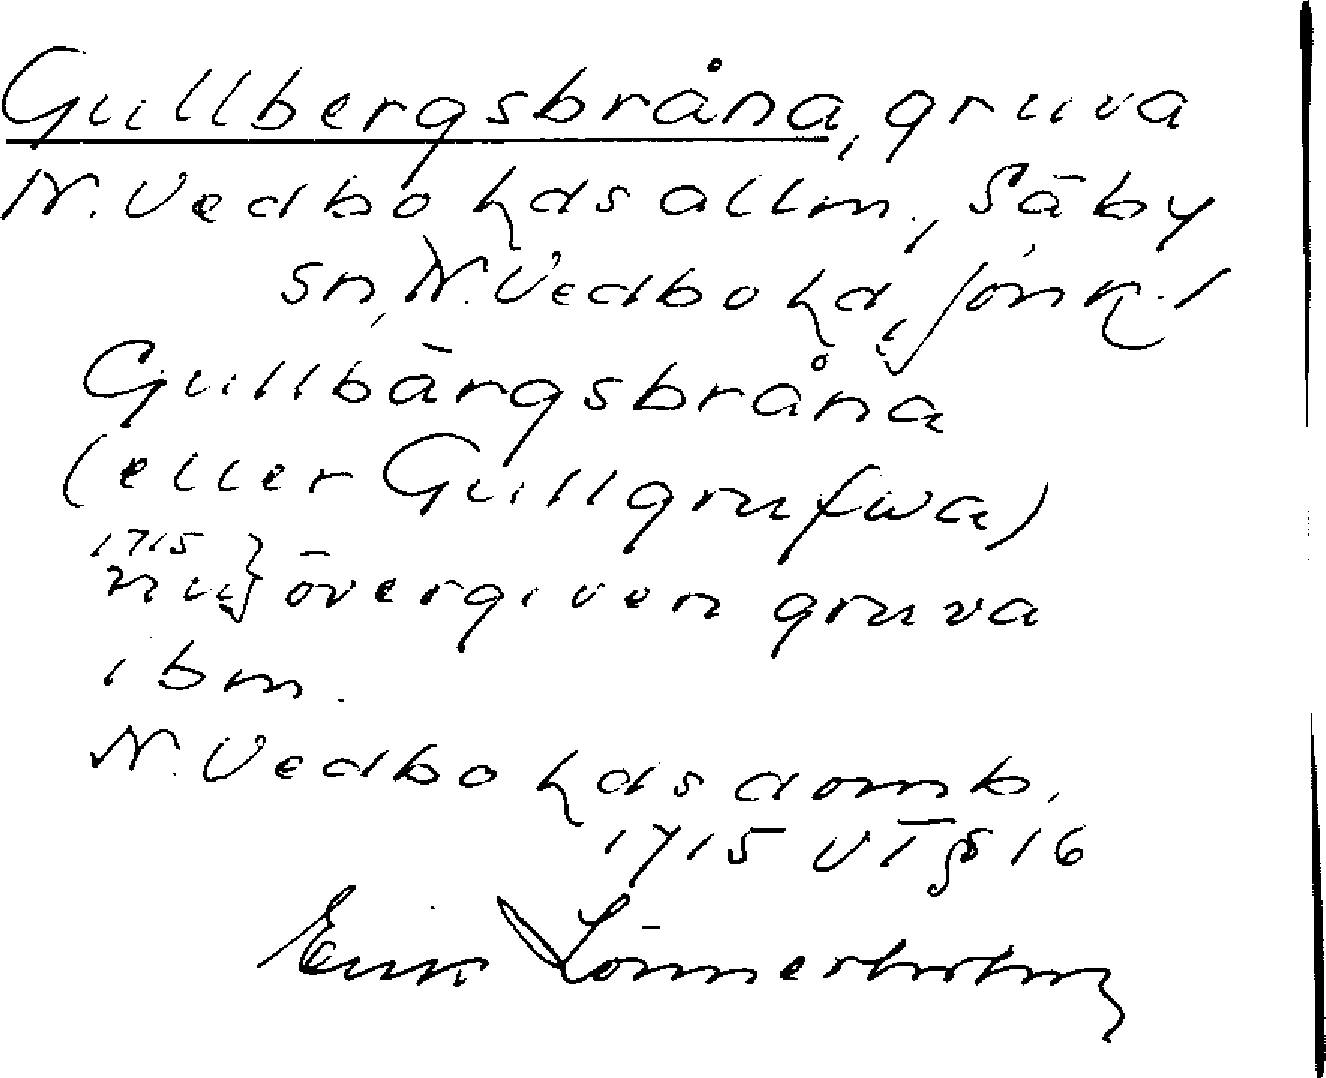 Gullbergsbråna, gruva
N. Vedbo hds allm., Säby
sn, N. Vedbo hd, Jönk. l
Gullbärgsbråna
(eller Gullgrufwa)
1715
nu} övergiven gruva
ibm.
N. Vedbo hds domb.
1715 VI § 16
Erik Lönnerholm